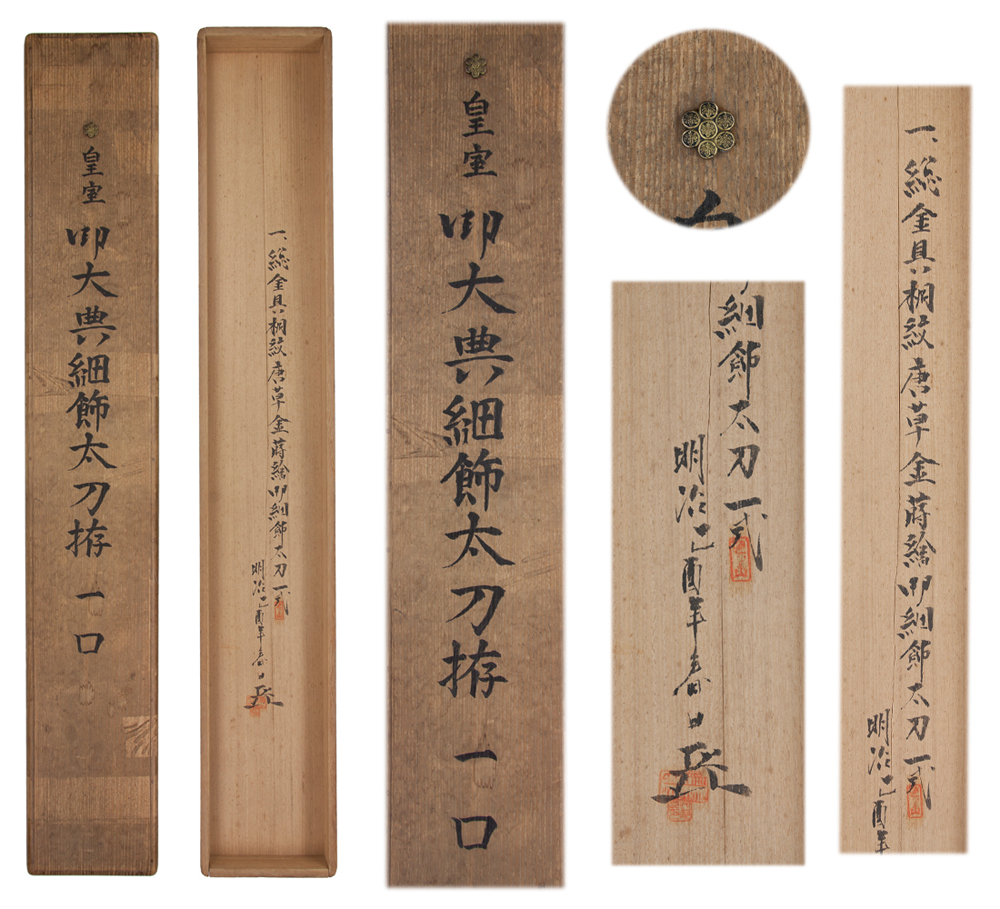 皇室
御大典細飾太刀拵 一口
一、総金具桐紋唐草金蒔繪御細飾太刀一式
明治己酉年春日
皇室
御大典細飾太刀拵 一口
細飾太刀一式
明治己酉年春日
一、総金具桐紋唐草金蒔繪御細飾太刀一式
明治己酉年